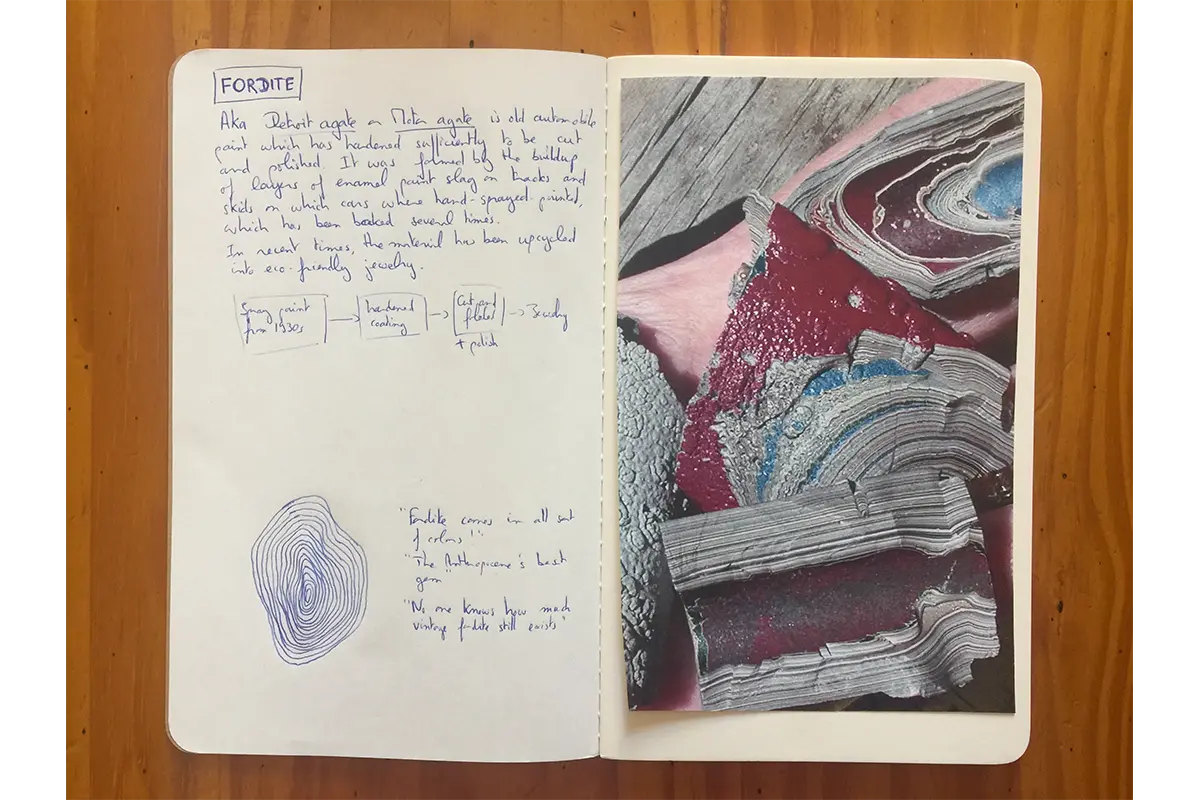 FORDITE
Aka Detroit agate or Motor agate is old automobile
paint which has hardened sufficiently to be cut
and polished. It was formed by the buildup
of layers of enamel paint slag on tracks and
skids on which cars where hand-sprayed-painted,
which has been baked several times.
In recent times, the material has been upcycled
into eco-friendly jewelry.
Spray paint
from 1930s
hardened
coating
Cut and
+ polish
Jewelry
"Fordite comes in all sort
of colors"
"The Anthropocene's best
gem"
"No one knows how much
vintage fordite still exists"